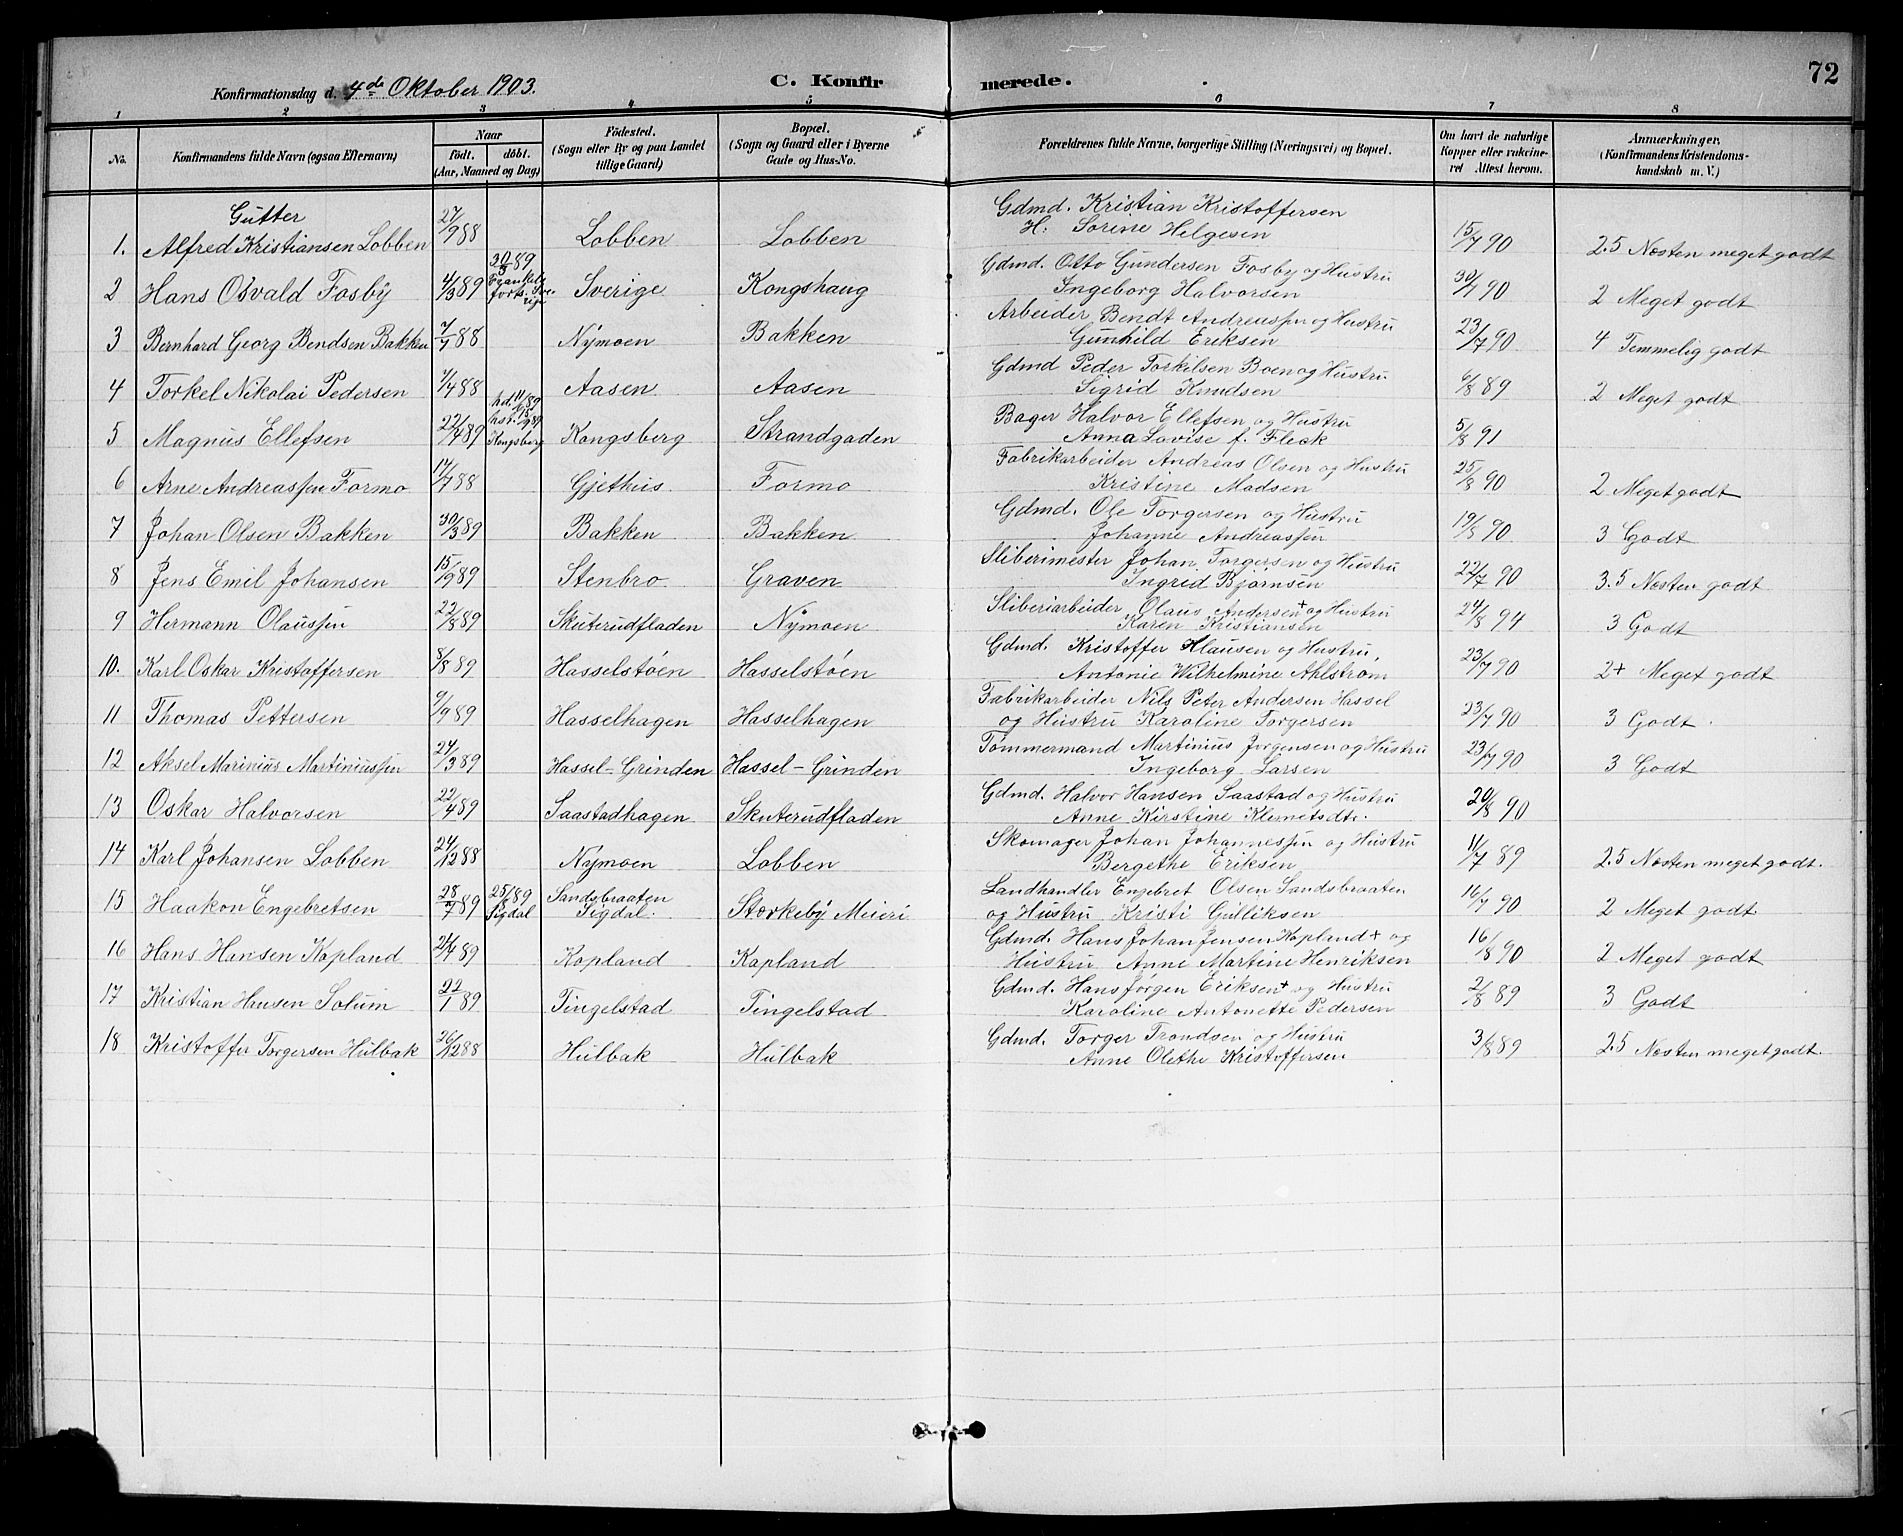 Konfirmationsdag d. 4de Oktober 1903. C. Konfirmerede. 72
1 2 3 4 5 6 7 8
No. Konfirmandens fulde Navn (ogsaa Efternavn) Naar født, døbt. (Aar, Maaned og Dag) Fødested. (Sogn eller By og paa Landet tillige Gaard) Bopæl. (Sogn og Gaard eller i Byerne Gade og Hus-No. Forældrenes fulde Navne, borgerlige Stilling (Næringsvei) og Bopæl. Om havt de naturlige Kopper eller vakcineret Attest herom. Anmærkninger. (Konfirmandens Kristendomskundskab m. V.)
Gutter
1. Alfred Kristiansen Lobben 27/9 88 Lobben Lobben Gdmd. Kristian Kristoffersen
H: Sorine Helgesen 15/7 90 2.5 Næsten meget godt
2 Hans Osvald Fosby 4/3 89 30/3 89 Sverige Kongshaug Gdmd. Otto Gundersen Fosby og Hustru
Ingeborg Halvorsen 30/7 90 2 Meget godt
3 Bernhard Georg Bendsen Bakken 7/7 88 Nymoen Bakken Arbeider Bendt Andreassen og Hustru
Gunhild Eriksen 23/7 90 4 Temmelig godt
4 Torkel Nikolai Pedersen 1/4 88 Aasen Aasen Gdmd Peder Torkilsen Boen og Hustru
Sigrid Knudsen 6/8 89 2 Meget godt
5 Magnus Ellefsen 22/4 89 Kongsberg Kongsberg Strandgaden Bager Halvor Ellefsen og Hustru
Anna Lovise f. Fleck 5/8 91
6 Arne Andreassen Formo 17/7 88 Gjethus Formo Fabrikarbeider Andreas Olsen og Hustru
Kristine Madsen 25/8 90 2 Meget godt
7 Johan Olsen Bakken 30/3 89 Bakken Bakken Gdmd. Ole Torgersen og Hustru
Johanne Andreassen 19/8 90 3 Godt
8 Jens Emil Johansen 15/9 89 Stenbro Graven Sliberimester Johan Torgersen og Hustru
Ingrid Bjørnsen 22/7 90 3.5 Næsten godt
9 Hermann Olaussen 22/8 89 Skuterudfladen Nymoen Sliberiarbeider Olaus Andersen + og Hustru
Karen Kristiansen 24/8 94 3 Godt
10. Karl Oskar Kristoffersen 8/8 89 Hasselstøen Hasselstøen Gdmd. Kristoffer Klausen og Hustru,
Antonie Wilhelmine Ahlstrøm 23/7 90 2+ Meget godt
11 Thomas Pettersen 9/9 89 Hasselhagen Hasselhagen Fabrikarbeider Nils Peter Andersen Hassel
og Hustru Karoline Torgersen 23/7 90 3 Godt.
12 Aksel Marinius Martiniussen 24/3 89 Hassel-Grinden Hassel-Grinden Tømmermand Martinius Jørgensen og Hustru
Ingeborg Larsen 23/7 90 3 Godt
13 Oskar Halvorsen 22/4 89 Saastadhagen Skuterudfladen Gdmd. Halvor Hansen Saastad og Hustru
Anne Kirstine Klemetsdt. 20/8 90
14 Karl Johansen Lobben 24/12 88 Nymoen Lobben Skomager Johan Johannessen og Hustru
Bergethe Eriksen 11/7 89 2.5 Næsten meget godt.
15 Haakon Engebretsen 28/7 89 25/8 89 Sigdal Sandsbraaten Sigdal. Storkeby Meieri Landhandler Engebret Olsen Sandsbraaten
og Hustru Kristi Gulliksen 16/7 90 2 Meget godt
16 Hans Hansen Kopland 21/4 89 Kopland Kopland Gdmd. Hans Johan Jensen Kopland + og
Hustru Anne Martine Henriksen 16/8 90 2 Meget godt
17 Kristian Hansen Solum 22/1 89 Tingelstad Tingelstad Gdmd. Hans Jørgen Eriksen + og Hustru
Karoline Antonette Pedersen 2/8 89 3 Godt
18 Kristoffer Torgersen Hulbak 26/12 88 Hulbak Hulbak Gdmd. Torger Trondsen og Hustru
Anne Olethe Kristoffersen 3/8 89 2.5 Næsten meget godt.